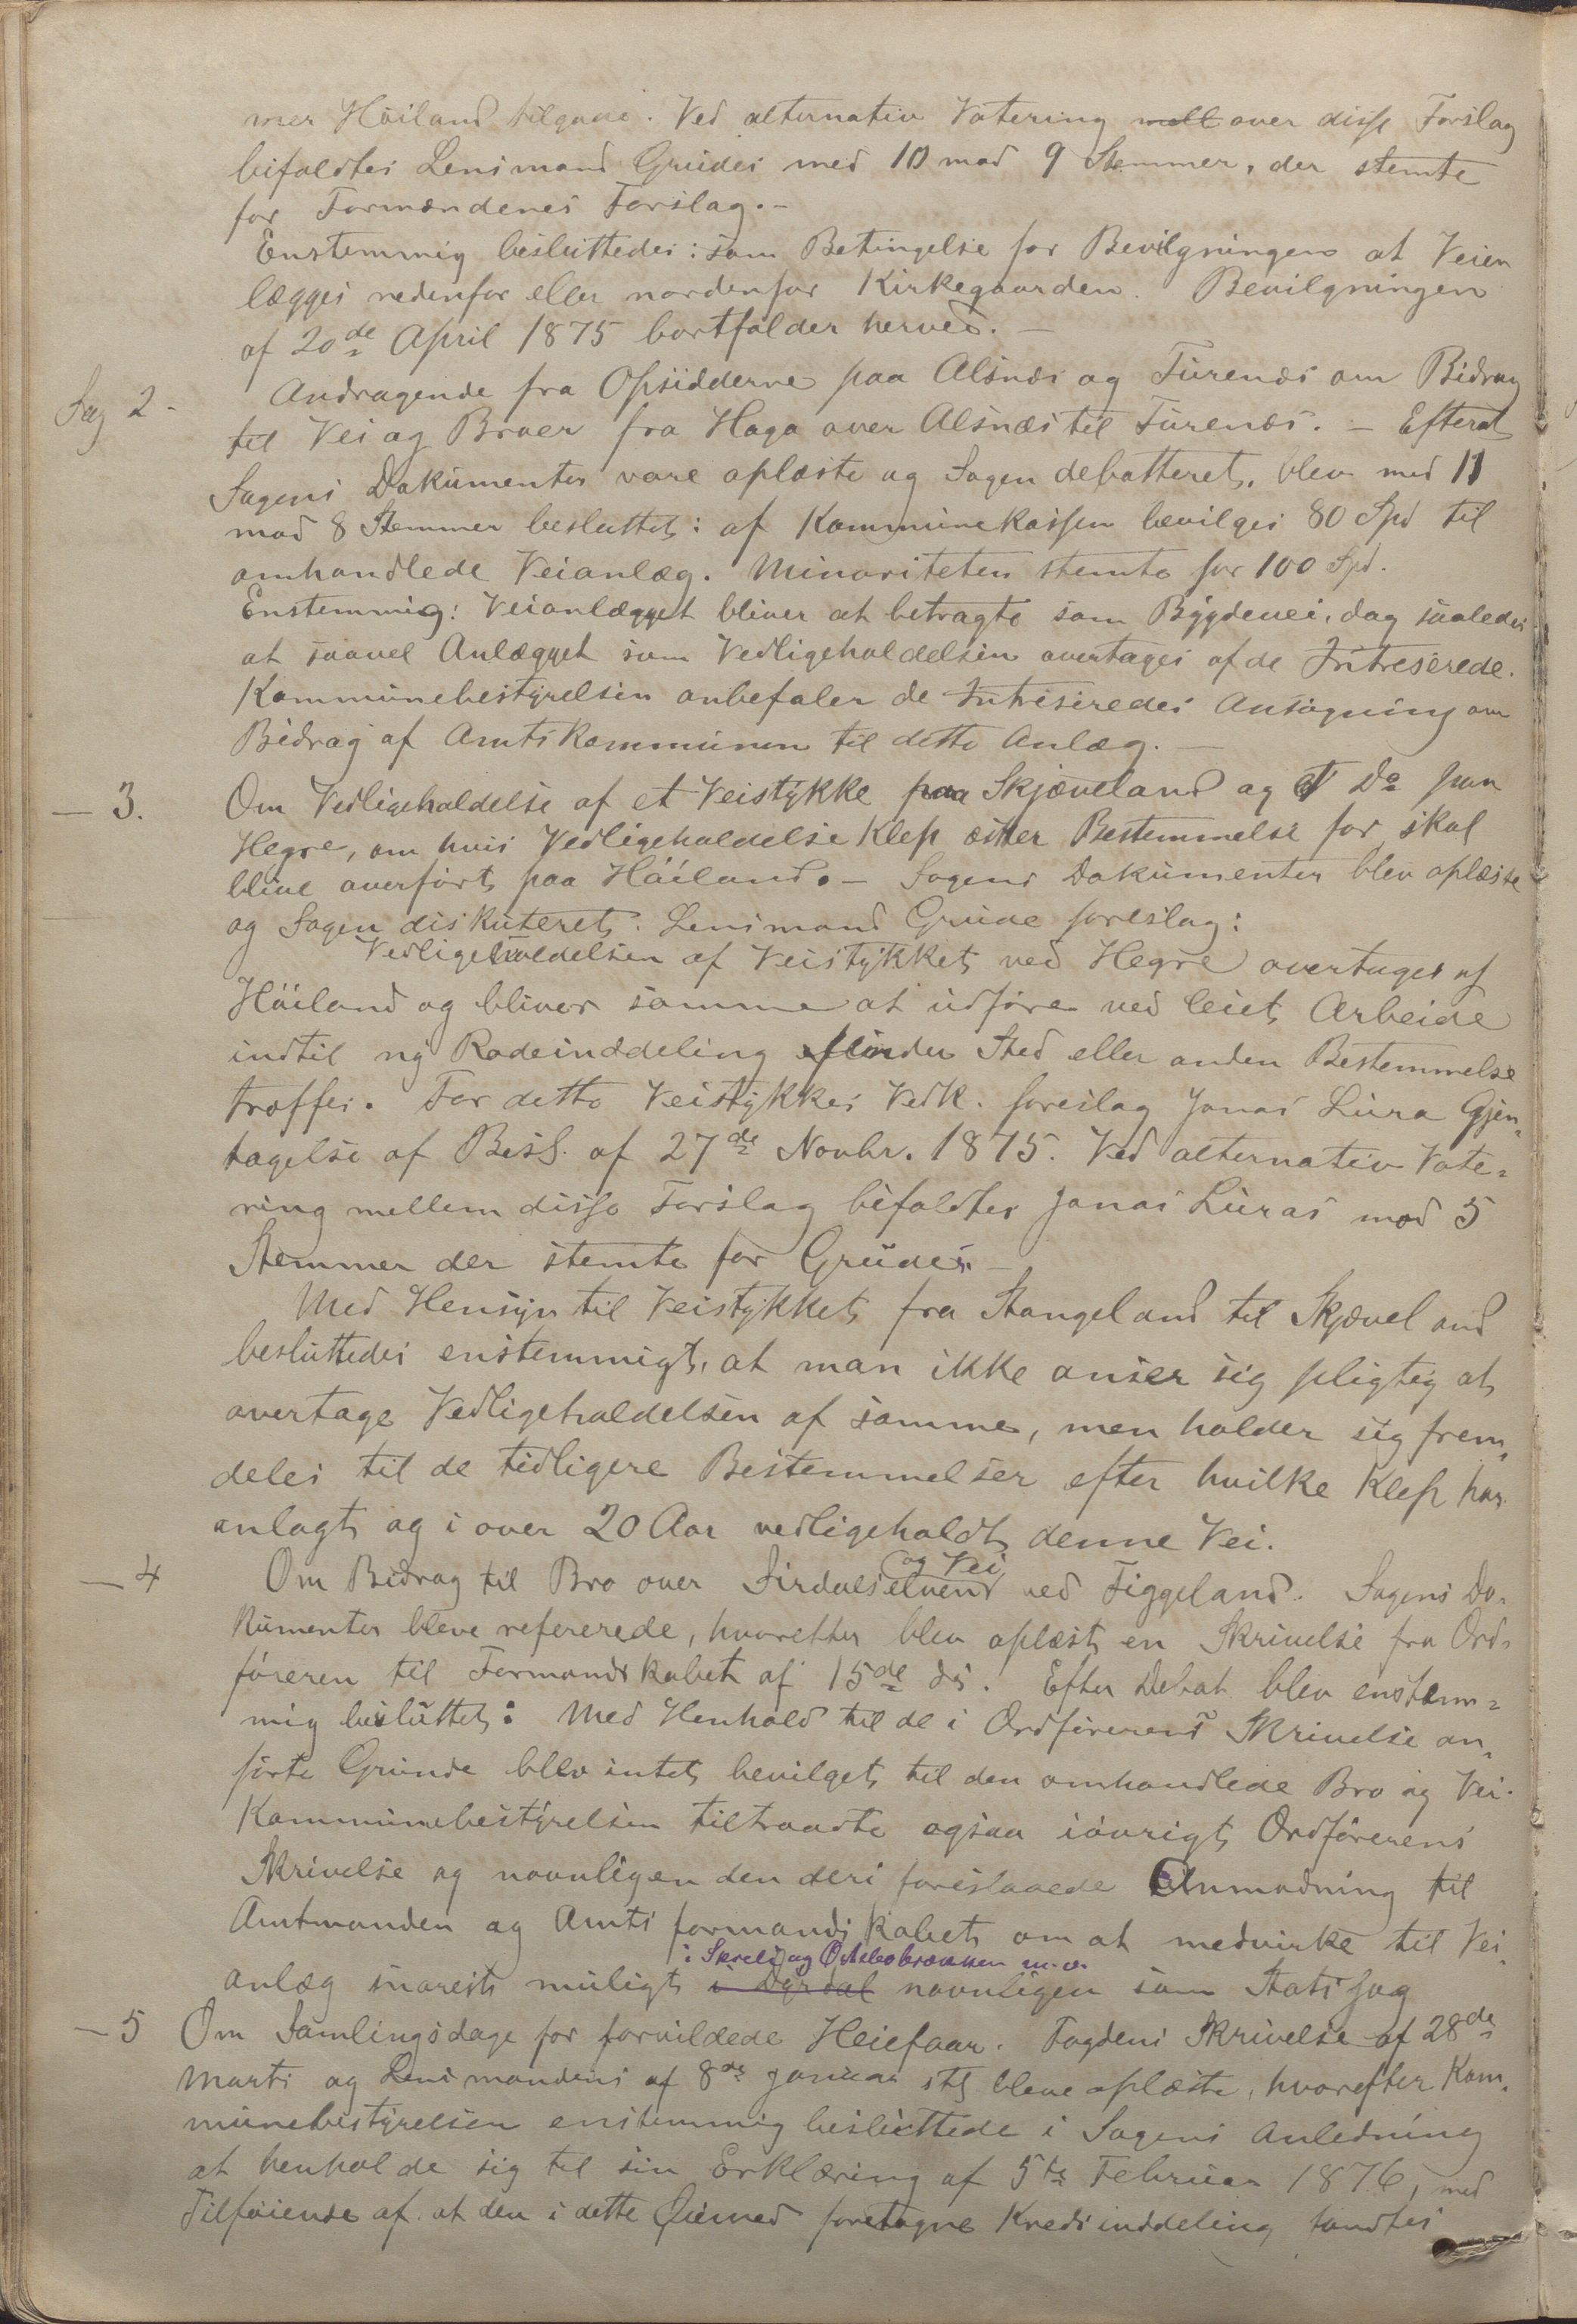 mer Höiland tilgave. Ved alternativ Votering mell over disse Forslag
bifaldtes Lensmand Grudes med 10 mod 9 Stemmer, der stemte
for Formændenes Forslag.-
Enstemmig besluttedes: som Betingelse for Bevilgningen at Veien
lægges nedenfor eller nordenfor Kirkegaarden. Bevilgningen
af 20de April 1875 bortfalder herved. -
Sag 2 -
Andragende fra Opsidderne paa Alsnæs og Furenæs om Bidrag
til Vei og Broer fra Haga over Alsnæs til Furenæs. - Efterat
Sagens Dokumenter vare oplæste og Sagen debatteret, blev med 11
mod 8 Stemmer besluttet: af Kommunekassen bevilges 80 Spd til
omhandlede Veianlæg. Minoriteten stemte for 100 Spd.
Enstemmig: Veianlægget bliver at betragte som Bygdevei, dog saaledes
at saavel Anlægget som Vedligeholdelsen overtages af de Intreserede.
Kommunebestyrelsen anbefaler de Intreseredes Ansögning om
Bidrag af Amtskommunen til dette Anlæg. -
- 3.
Om Vedligeholdelse af et Veistykke paa Skjæveland og et Do paa
Hegre, om hvis Vedligeholdelse Klep æsker Bestemmelse for skal
blive overfört paa Höiland. - Sagens Dokumenter blev oplæste
og Sagen diskuteret. Lensmand Grude foreslog:
Vedligeholdelsen af Veistykket ved Hegre overtages af
Höiland og bliver samme at udföre ved leiet Arbeide
indtil ny Rodeinddeling finder Sted eller anden Bestemmelse
træffes. For dette Veistykkes Vedk. foreslog Jonas Lura Gjen-
tagelse af Besl. af 27de Novbr. 1875. Ved alternativ Vote-
ring mellem disse Forslag bifaldtes Jonas Luras mod 5
Stemmer der stemte for Grudes. -
Med Hensyn til Veistykket fra Stangeland til Skjæveland
besluttedes enstemmigt, at man ikke anser sig pligtig at
overtage Vedligeholdelsen af samme, men holder sig frem-
deles til de tidligere Bestemmelser efter hvilke Klep har
anlagt og i over 20 Aar vedligeholdt denne Vei.
- 4
Om Bidrag til Bro over Sirdalselven og Vei ved Figgeland. Sagens Do-
kumenter bleve refererede, hvorefter blev oplæst en Skrivelse fra Ord-
föreren til Formandskabet af 15de ds. Efter Debat blev enstem-
mig besluttet: Med Henhold til de i Ordförerens Skrivelse an-
förte Grunde blev intet bevilget til den omhandlede Bro og Vei.
Kommunebestyrelsen tiltraadte ogsaa iövrigt Ordförerens
Skrivelse og navnligen den deri foreslaaede Anmodning til
Amtmanden og Amtsformandskabet om at medvirke til Vei-
anlæg snarest muligt i Dyrdal i og m.v. navnligen som Statssag
- 5
Om Samlingsdage for forvildede Heiefaar. Fogdens Skrivelse af 28de
Marts og Lensmandens af 8de Januar stl bleve oplæste, hvorefter Kom-
munebestyrelsen enstemmig besluttede i Sagens Anledning
at henholde sig til sin Erklæring af 5te Februar 1876, med
Tilföiende af at den i dette Öiemed foretagne Kredsinddeling fandtes